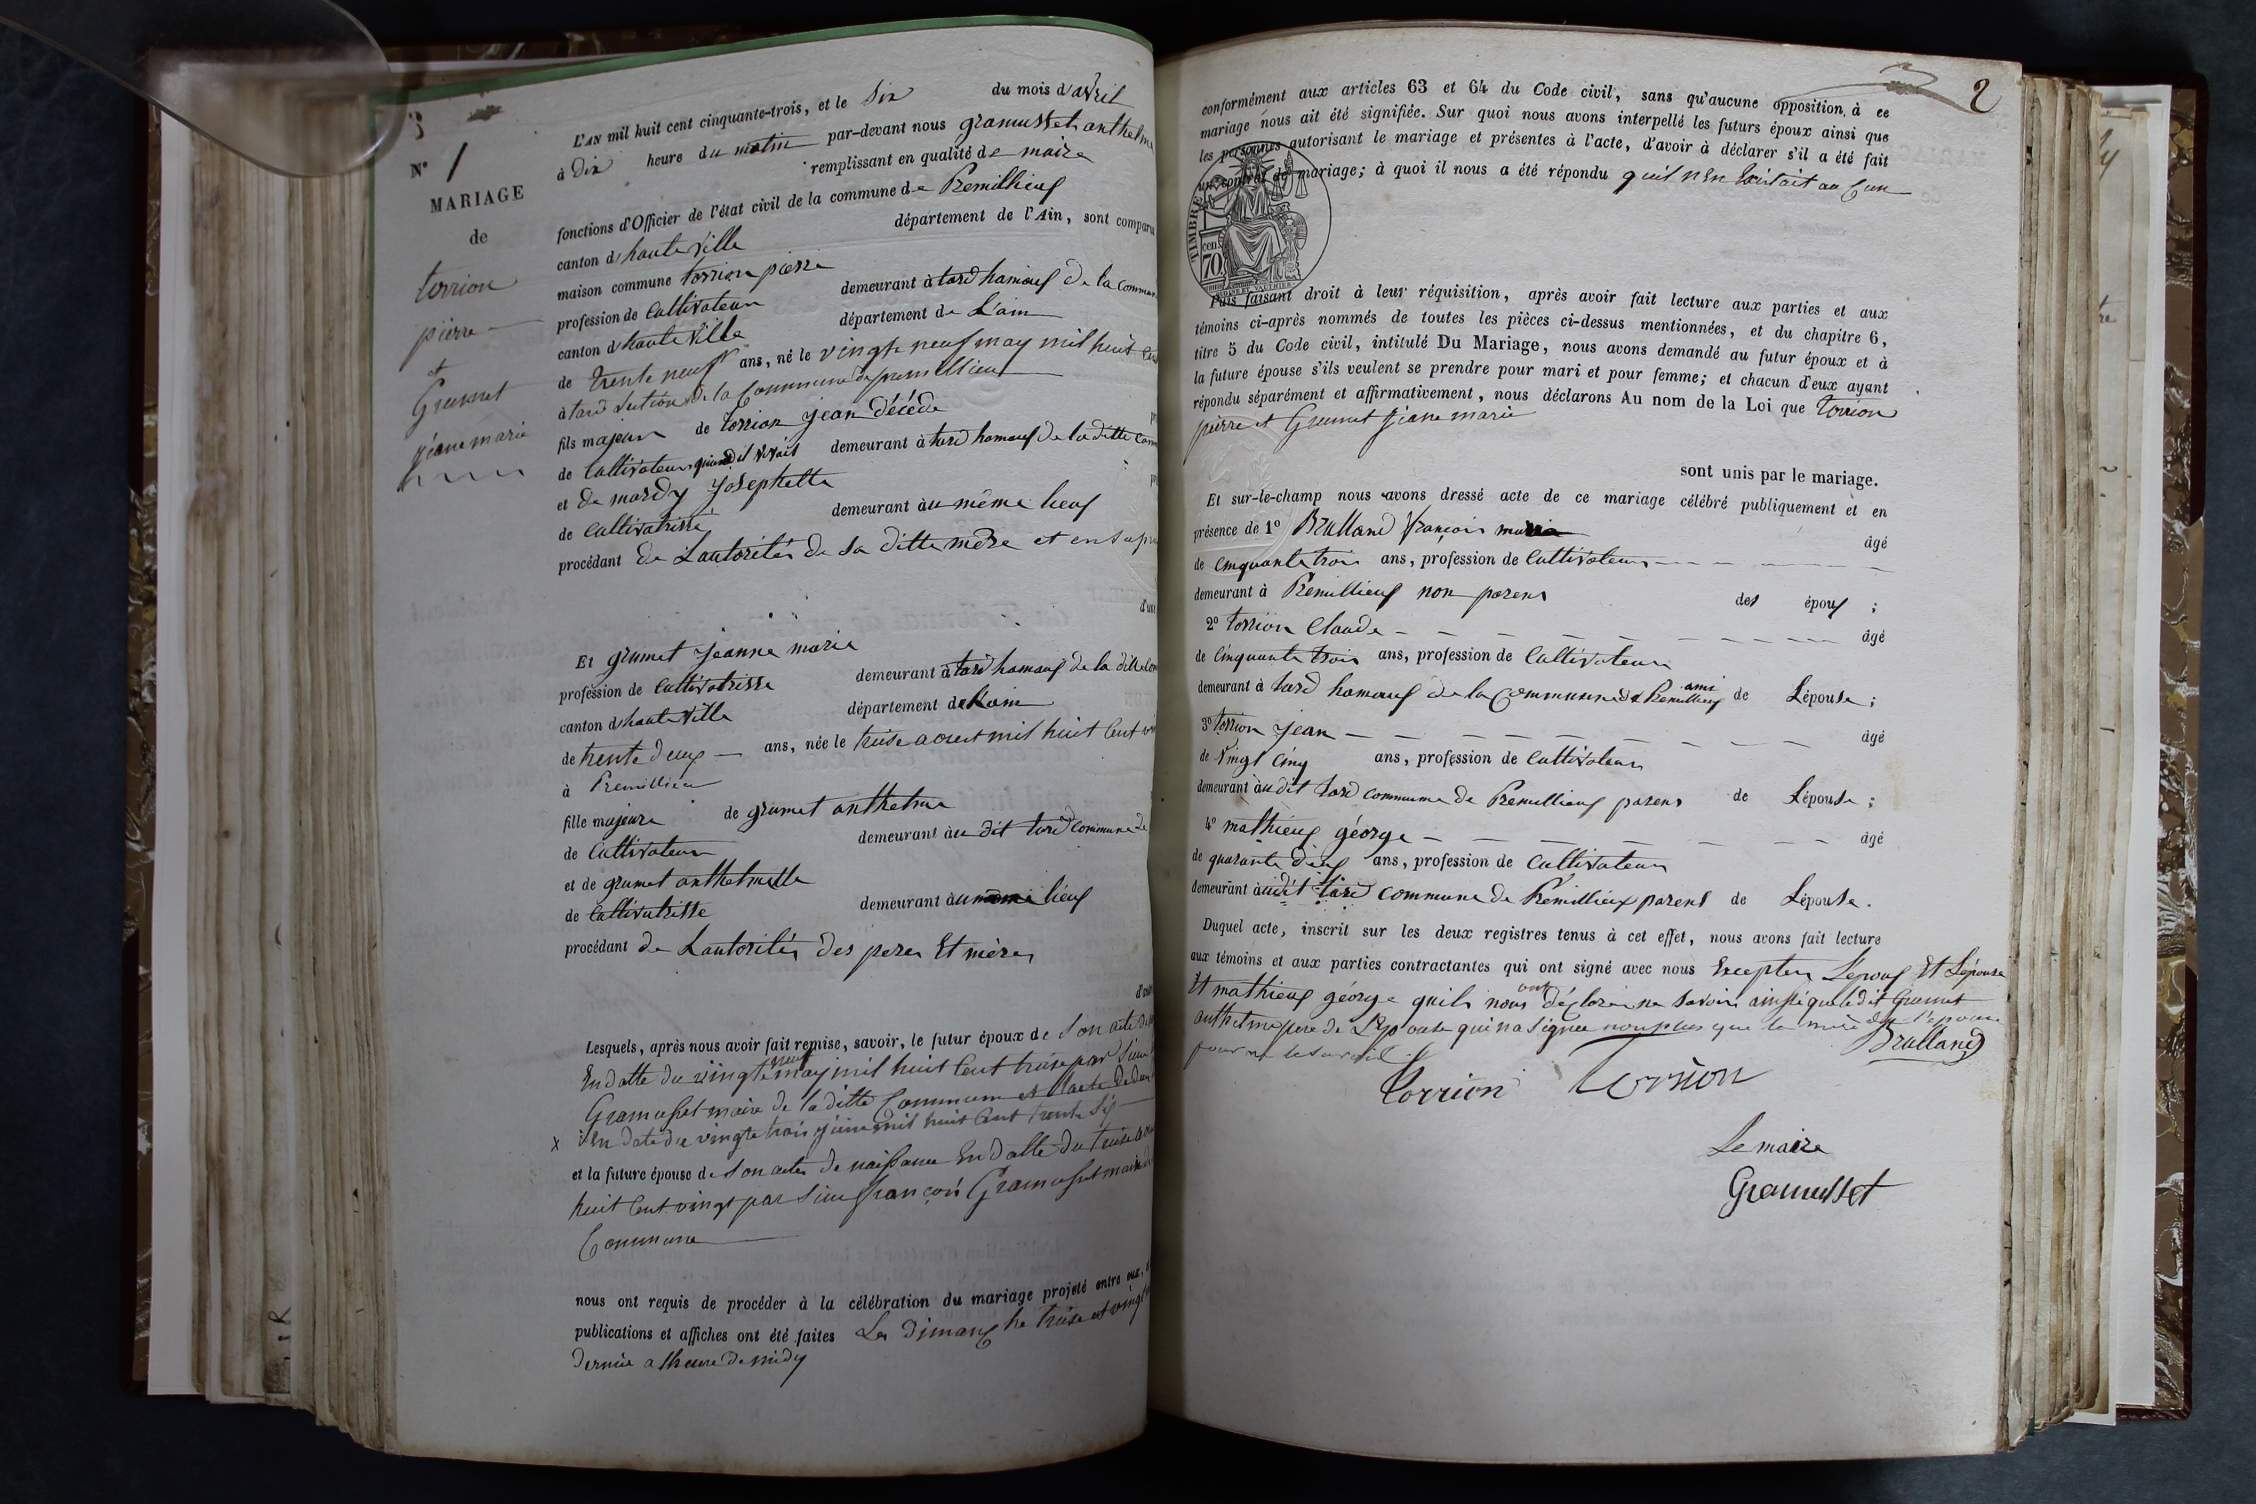 N° 1
MARIAGE
de
torrion
pierre
et
Grumet
jéane marie
L'AN mil huit cent cinquante-trois, et le Six du mois d'avril
à Dix heure du matin par-devant nous gramusset anthelme
remplissant en qualité de maire
fonctions d'Officier de l'état civil de la commune de Premillieuf
canton d hauteville département de l'Ain, sont comparu
maison commune torrion pierre
profession de Cultivateur demeurant à tard hamauf de la Commun
canton d hauteville département de L'ain
de trente neuf ans, né le vingte neuf may mil huit Cen
à tard Section de la Commune de premillieuf
fils majeur de torrion jean décédé
de Cultivateur quand il vivait demeurant à tard hamauf de la ditte Com
et de mardy josephette
de Cultivatrisse demeurant àu même lieuf
procédant de Lautorités de sa ditte mère et en
Et grumet jeanne marie
profession de Cultivatrisse demeurant à tard hamauf de la ditte Com
canton d hauteville département de Lain
de trente deuf ans, née le treise aoust mil huit Cent
à Premillieu
fille majeure de grumet anthelme
de Cultivateur demeurant àu dit tard Commune de
et de grumet anthelmette
de Cultivatrisse demeurant àu même lieuf
procédant de Lautorités des peres Et mères
Lesquels, après nous avoir fait remise, savoir, le futur époux de Son acte de
En datte du vingte neuf may mil huit Cent treise par Sieur
Gramusset maire de la ditte Commune et l'acte de
X En date du vingte trois mil huit Cent trente Six
et la future épouse de Son acte de naissance En datte du treise
huit Cent vingt par Sieur françois Gramusset maire
Commune
nous ont requis de procéder à la célébration du mariage projeté entre eux,
publications et affiches ont été faites Les dimanche treise et vingt
dernier a lheure de midy
2
conformément aux articles 63 et 64 du Code civil, sans qu'aucune opposition à ce
mariage nous ait été signifiée. Sur quoi nous avons interpellé les futurs époux ainsi que
les personnes autorisant le mariage et présentes à l'acte, d'avoir à déclarer s'il a été fait
un contrat de mariage; à quoi il nous a été répondu quil nen Existait au Cun
TIMBRE
70 cen.
Puis faisant droit à leur réquisition, après avoir fait lecture aux parties et aux
témoins ci-après nommés de toutes les pièces ci-dessus mentionnées, et du chapitre 6,
titre 5 du Code civil, intitulé Du Mariage, nous avons demandé au futur époux et à
la future épouse s'ils veulent se prendre pour mari et pour femme; et chacun d'eux ayant
répondu séparément et affirmativement, nous déclarons Au nom de la Loi que torrion
pierre et Grumet jéane marie
sont unis par le mariage.
Et sur-le-champ nous avons dressé acte de ce mariage célébré publiquement et en
présence de 1° Brulland françois marie âgé
de Cinquante trois ans, profession de Cultivateur
demeurant à Premillieuf non parens des épouf ;
2° torrion Claude âgé
de Cinquante trois ans, profession de Cultivateur
demeurant à tard hamauf de la Commune de Premillieuf ami de Lépouse ;
3° torrion jean âgé
de Vingt Cinq ans, profession de Cultivateur
demeurant àu dit tard commune de Premillieuf parens de Lépouse ;
4° mathieuf géorge âgé
de quarante dèuf ans, profession de Cultivateur
demeurant àu dit tard commune de Prémillieux parent de Lépouse.
Duquel acte, inscrit sur les deux registres tenus à cet effet, nous avons fait lecture
aux témoins et aux parties contractantes qui ont signé avec nous Exceptés Lépouf Et Lépouse
Et mathieuf géorge quils nous ont déclorés ne Savoir ainsi que le dit Grumet
anthelme pere de Lépouse qui na Signer nonplus que la mère de l'épouse
pour ne le savoir Brulland
Torrion Torrion
Le maire
Gramusset